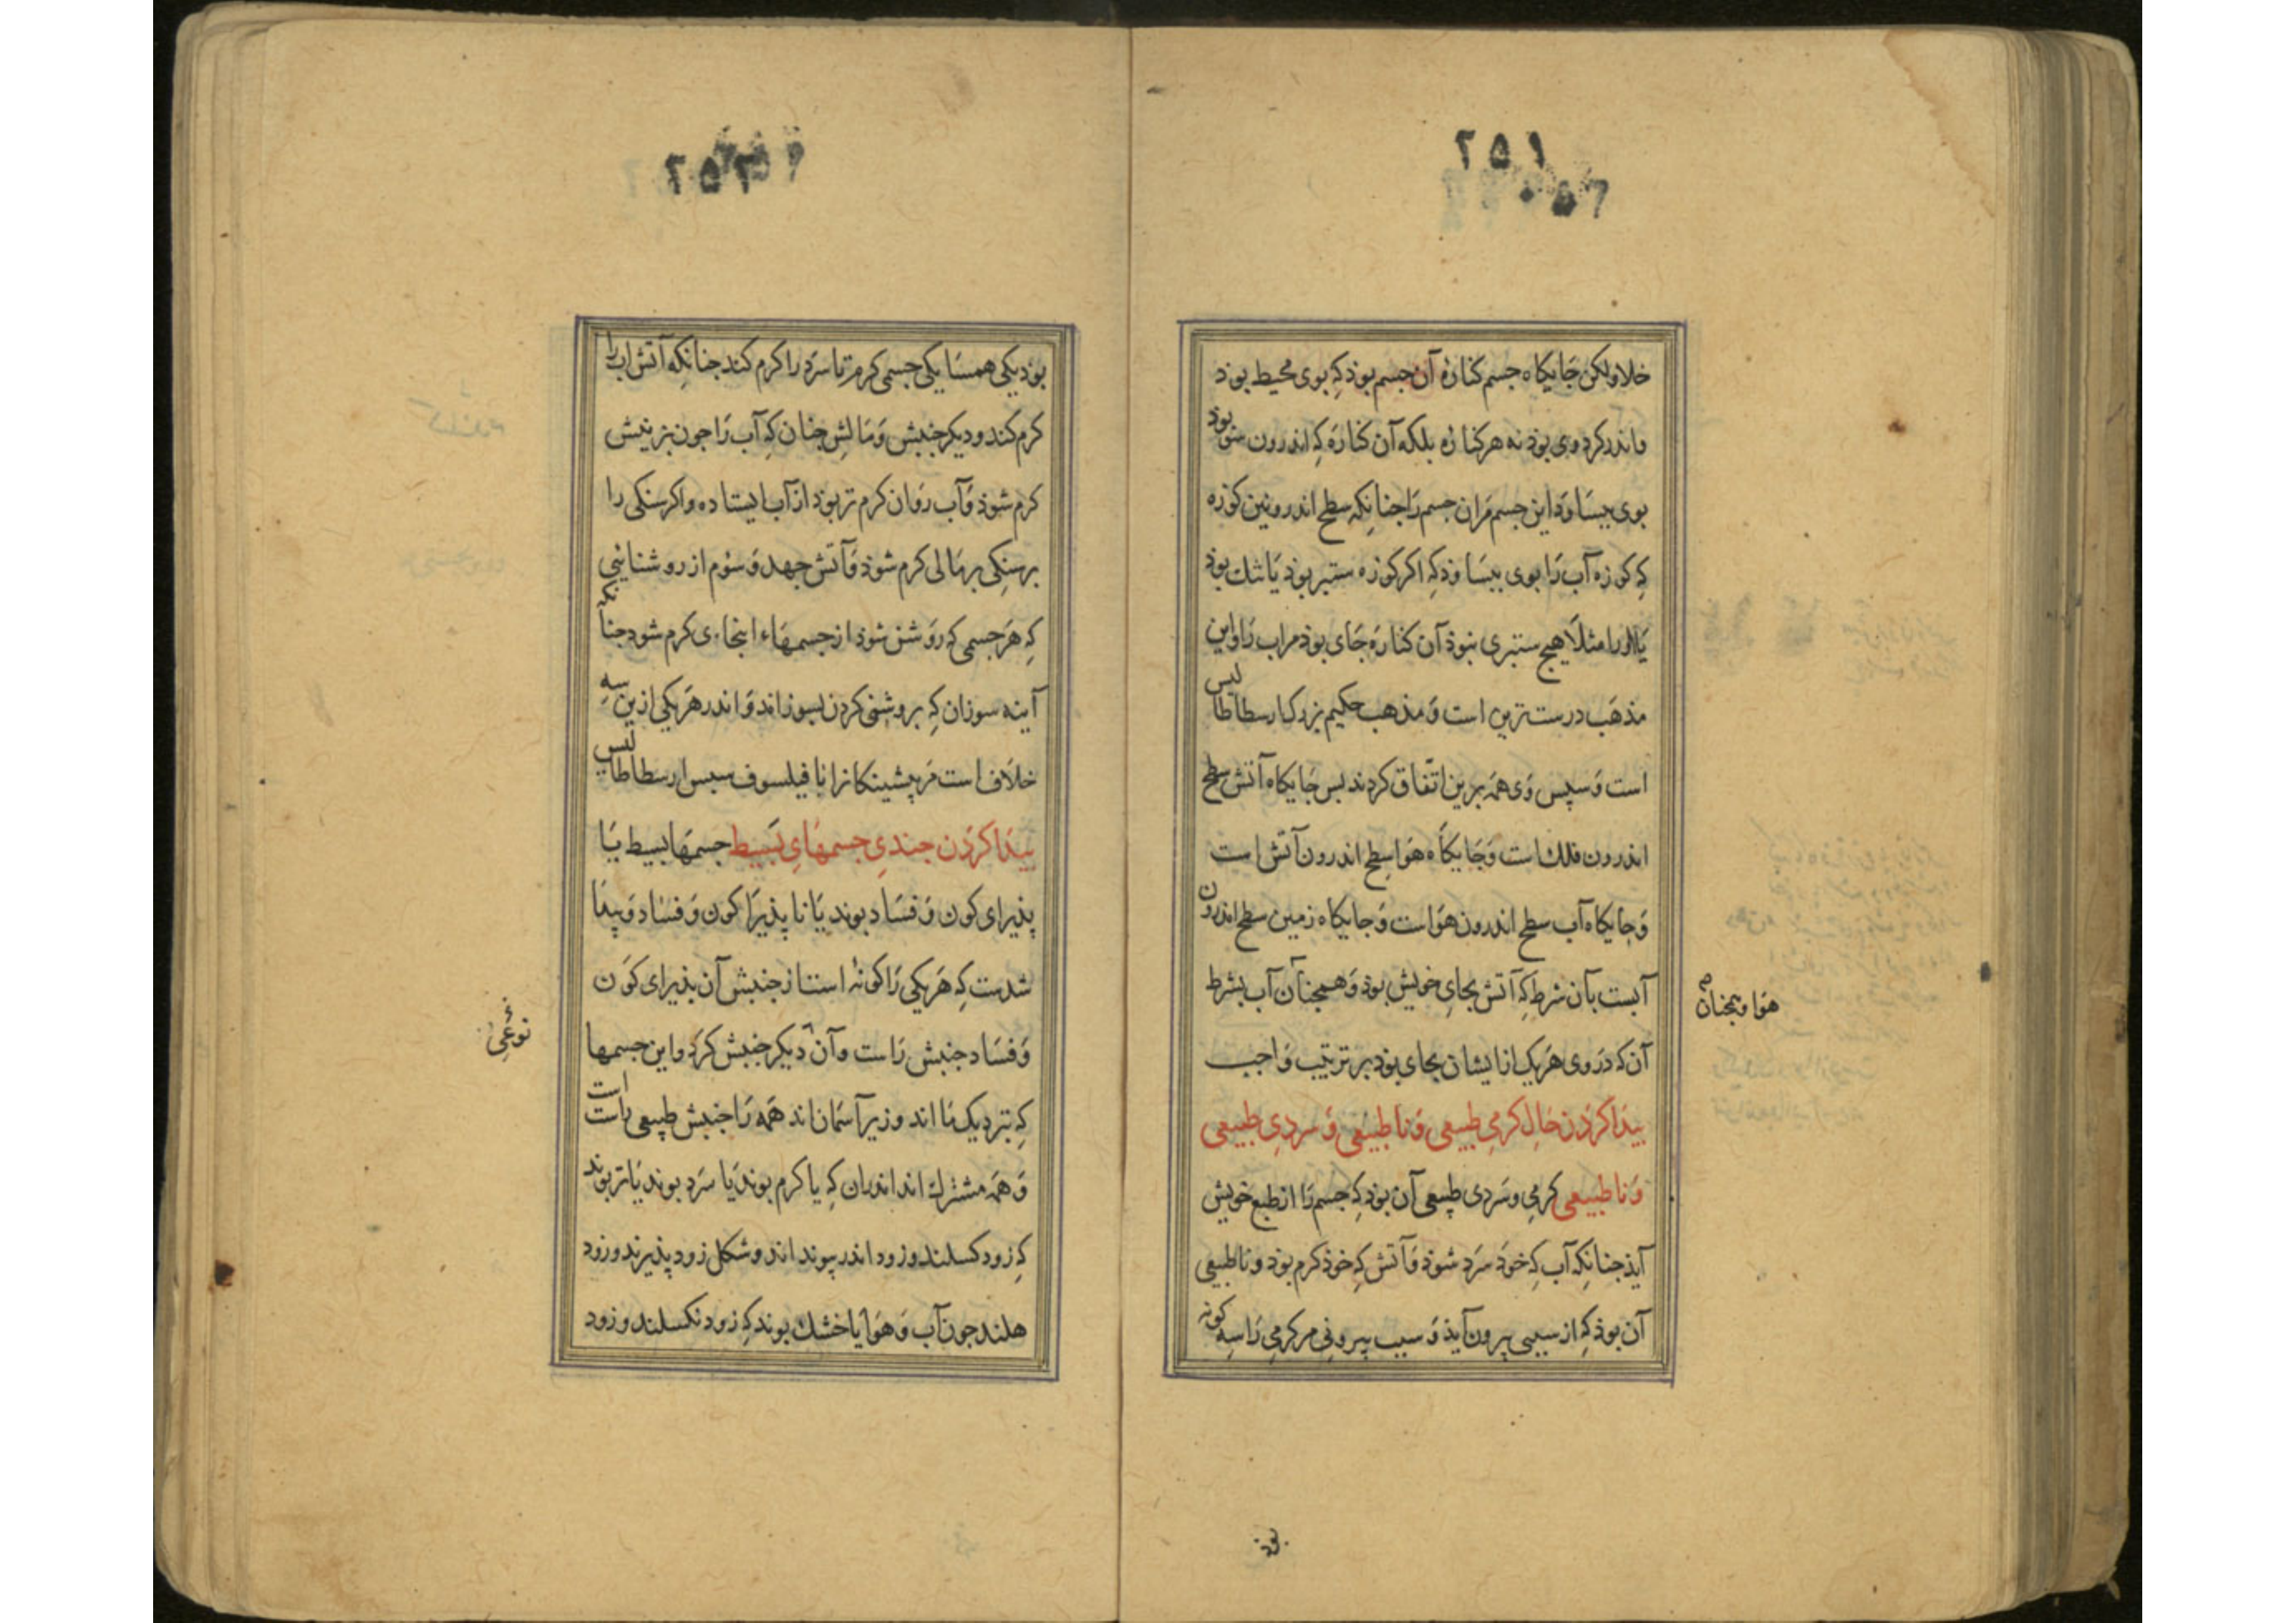 ۲۵۱
خلا ولکن جایکاه جسم کنارهٔ آن جسم بوذ کِه بوی محیط بوذ
و اندر کرد وی بوذ نه هر کناره بلکه آن کنارَه کِه اندرون سُو بوذ
بوی بیسَاوَد این جسم مَران جسم رَا جنانکه سطح اندرونین کوزه
کِه کوزه آب رَا بوی بیسَاوذ کِه اکر کوزه ستبر بوذ یَا تنك بوذ
یَا اورا مثلًا هیج ستبری نبوذ آن کنارَه جَای بوذ مراب رَا و این
مذهَب درست ترین است وَ مذهب حکیم بزرك ارسطاطالیس
است وَ سپس وَی همَه برین اتّفاق کردند بس جَایکاه آتش سطح
اندرون فلك است وَ جَایکاه هَوا سطح اندرون آتش است
وَ جایکاه آب سطح اندرون هَوَاست وَ جایکاه زمین سطح اندرون
آبست بآن شرط کِه آتش بجایِ خویش بوذ وَ همجنان آب بشرط
هَوا و همجنان
آن که دَر وی هَریک از ایشان بجای بوَد بر ترتیب وَاجب
بیدَا کرذن حَالِ کرمیِ طبیعی وَ نا طبیعی وَ سردیِ طبیعی
وَ نا طبیعی کرمی و سَردی طبیعی آن بوذ کِه جسم رَا از طبع خویش
آیذ جنانکِه آب کِه خوذ سَرد شوذ وَ آتش کِه خوذ کرم بوذ و نا طبیعی
آن بوذ کِه از سببی بیرون آیذ وَ سبب بیرونی مر کرمی رَا سِه کونه
بوذ
۲۵۲
بوذ یکی همسَایکی جسمی کرم تا سرَد را کرم کند جنانکِه آتش آب را
کرم کند و دیکر جنبش وَ مَالش جنان کِه آب رَا جون بزنیش
کرم شوذ وَ آب رَوان کرم تر بوذ از آب ایستاده و اکر سنکی را
بر سنکِی بر مَالی کرم شوذ وَ آتش جهد وَ سوُم از روشنائی
کِه هَر جسمی کِه رَوشن شوذ از جسمهَاء اینجاءی کرم شود جنانکه
آینه سوزان کِه بروشنی کردن بسوزاند وَ اندر هَر یکی ازین سه
خلاف است مَر پیشینکانرا تا فیلسوف سبس ارسطاطالیس
بیدَا کرذن جندیِ جسمهَایِ بَسیط جسمهَا بسیط یَا
پذیرای کون وَ فسَاد بوند یَا نا پذیرَا کون وَ فسَاد وَ پیدَا
شدست کِه هَریکی رَا کونهٔ است از جنبش آن بذیرای کوَن
وَ فسَاد جنبش رَاست و آن دَیکر جنبش کرَد و این جسمها
نوعی
کِه نزدیک مَا اند و زیر آسمَان اند همَه رَا جنبش طبیعی رَاست است
وَ همَه مشترك اند اندران کِه یا کرم بوند یَا سَرد بوند یَا تر بوند
کِه زود کسلند و زود اندر پیوند اند و شکل زود پذیرند و زود
هلند جون آب وَ هوَا یا خشك بوند کِه زود نکسلند و زود